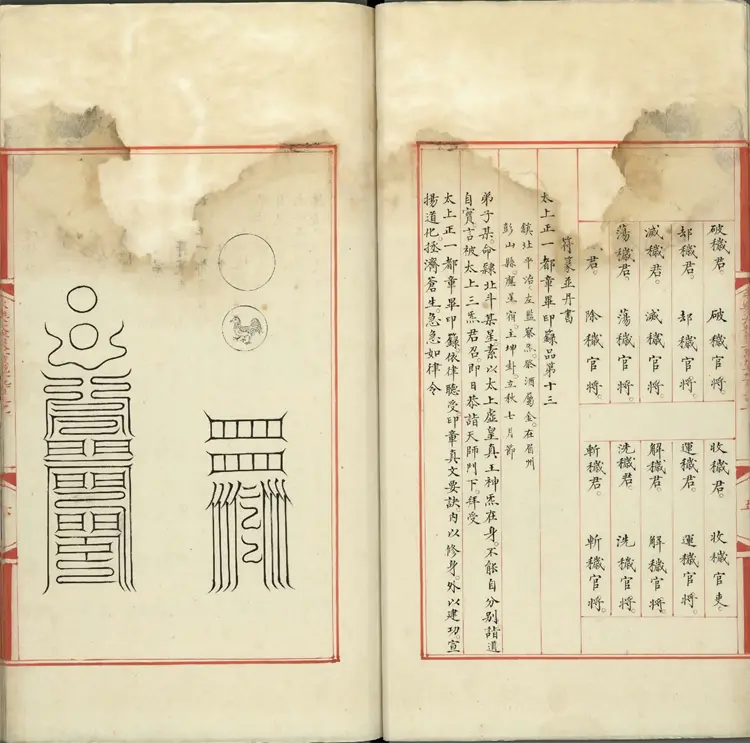 破穢君。 破穢官將。
却穢君。 却穢官將。
滅穢君。 滅穢官將。
蕩穢君。 蕩穢官將。
君。 除穢官將。
收穢君。 收穢官吏。
運穢君。 運穢官將。
解穢君。 解穢官將。
洗穢君。 洗穢官將。
斬穢君。 斬穢官將。
符篆並丹書
太上正一都章畢印籙品第十三
鎮北平治。左監察炁。屬金。在眉州
彭山縣。應某宿。主坤卦。立秋七月節
弟子某。命隸北斗某星。素以太上虛皇真王神炁在身。不能自分別。詣道
自實。言被太上三炁君召。即日恭詣天師門下。拜受
太上正一都章畢印籙。依律聽受印章真文要訣。內以修身。外以建功。宣
揚道化。拯濟蒼生。急急如律令